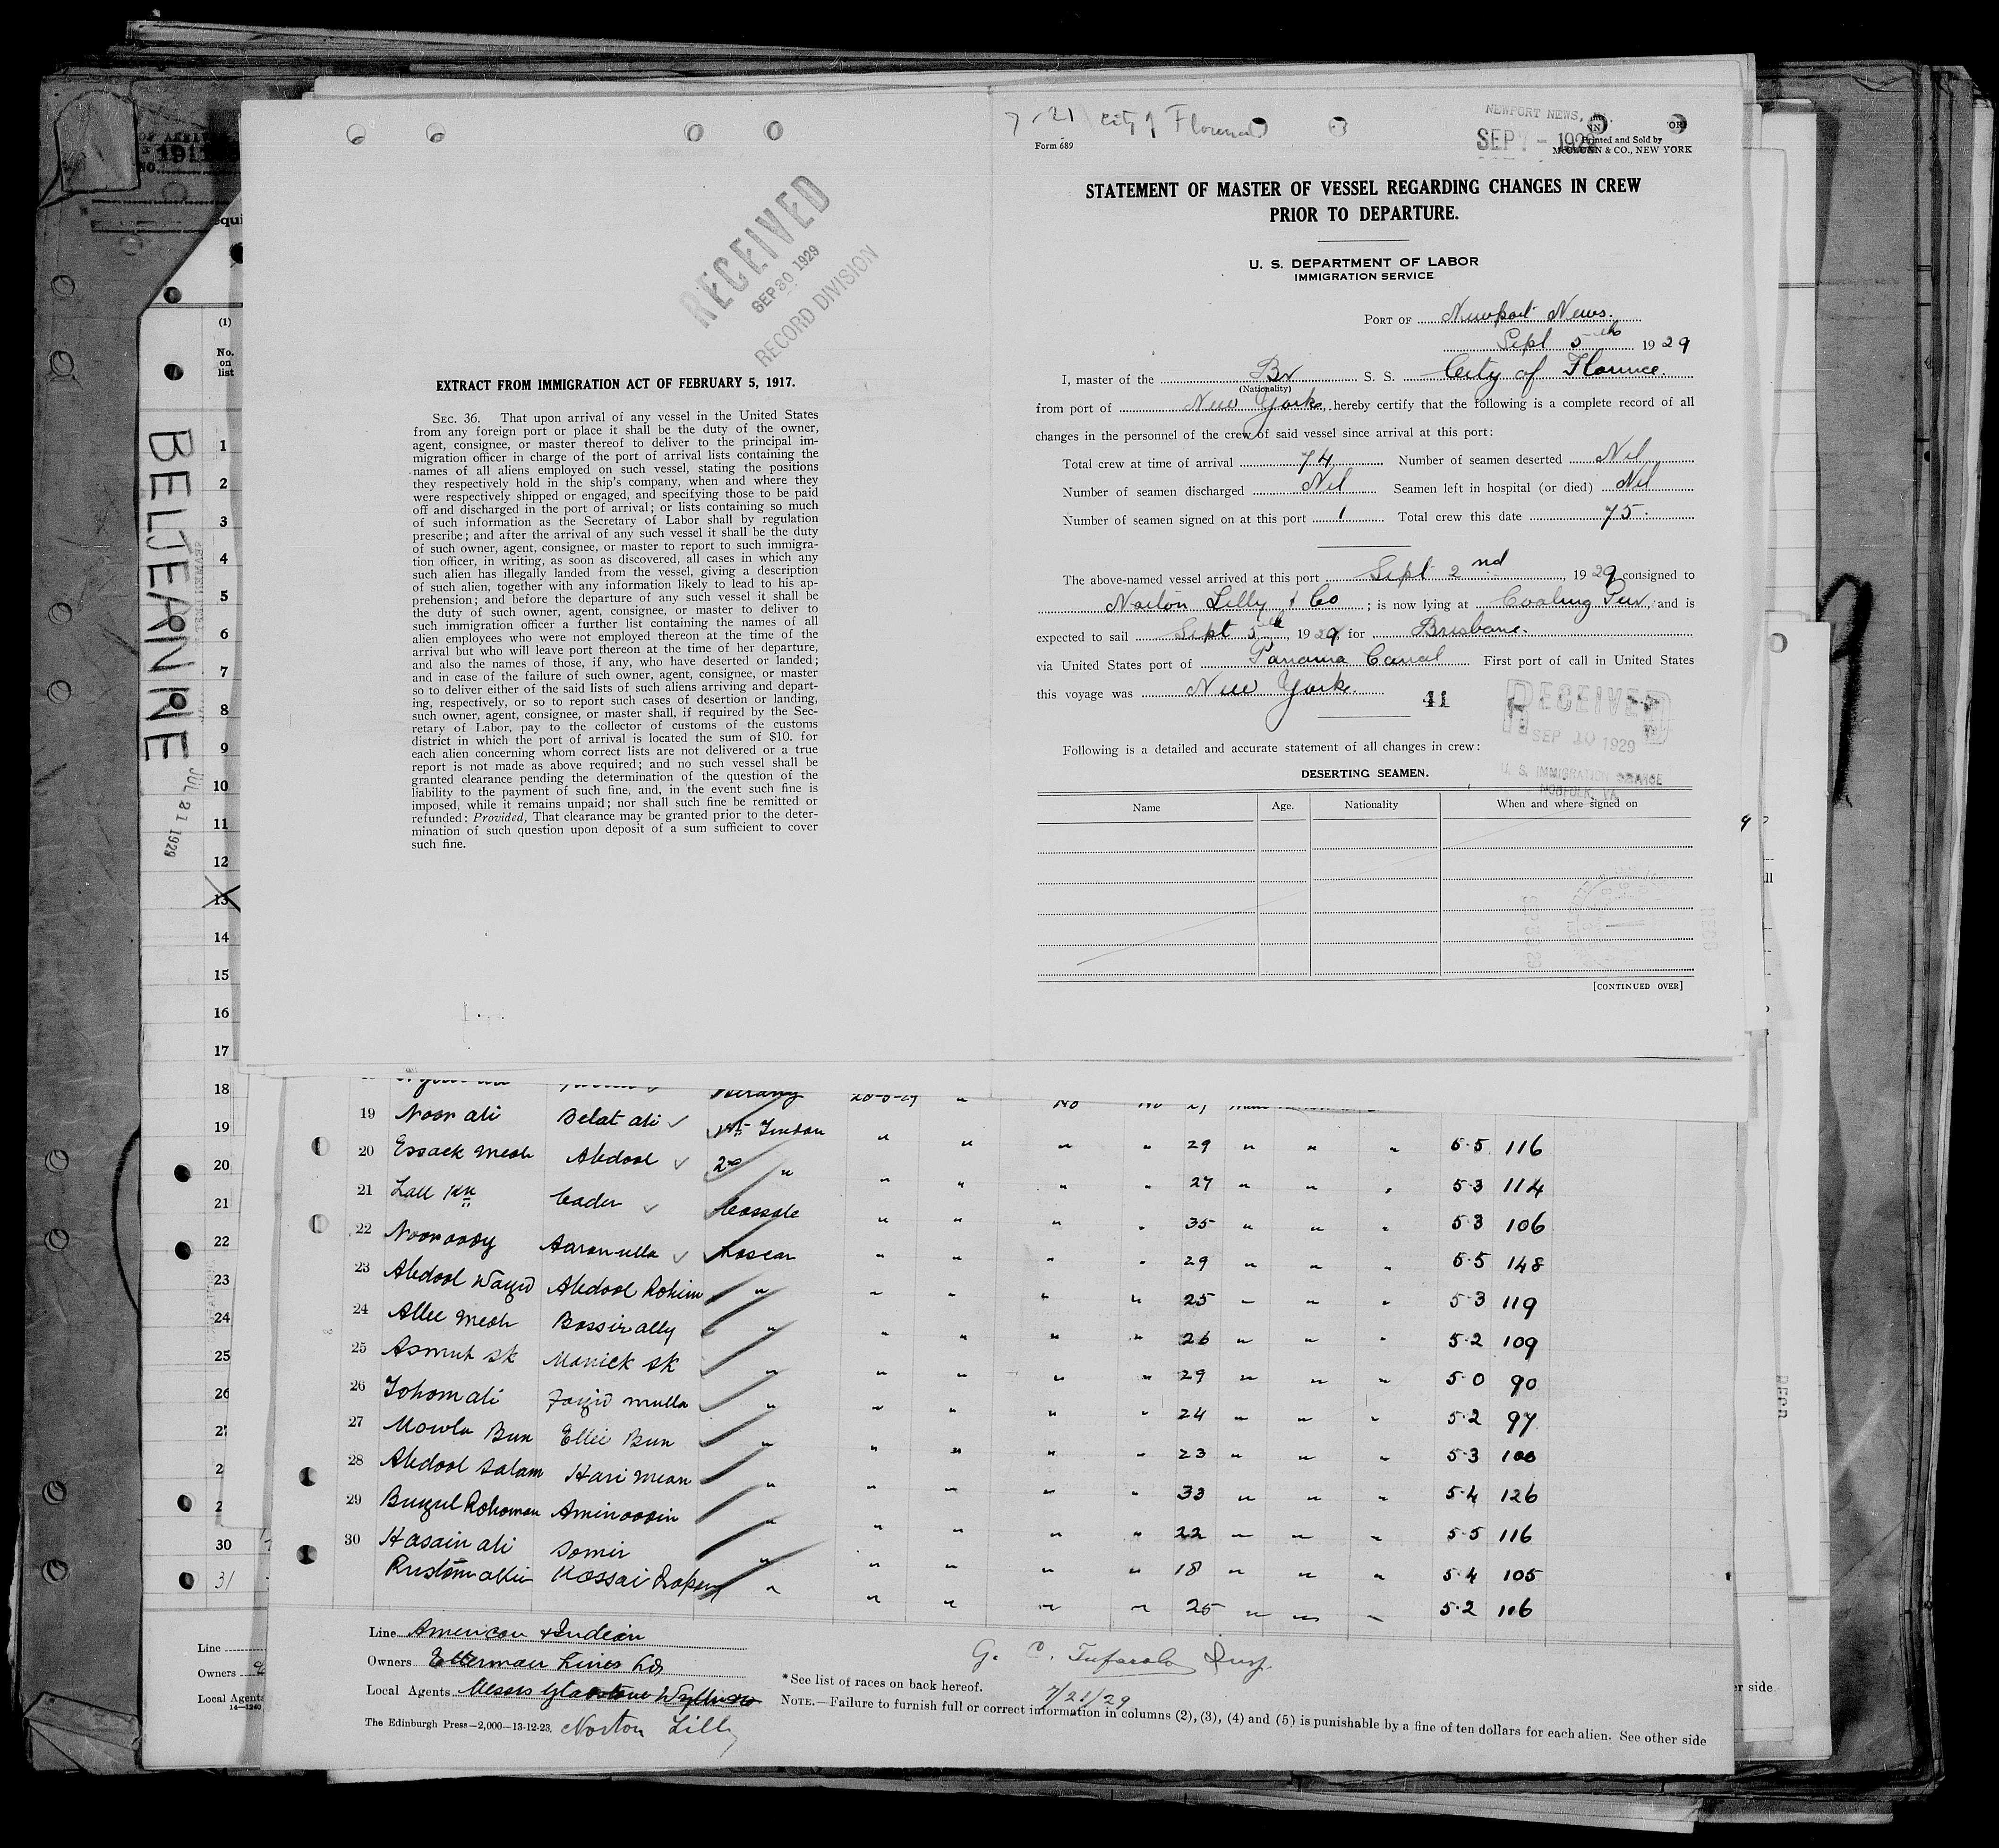 7-21 City of Florence
Form 689
NEWPORT NEWS,
SEP 7 - 1929
Printed and Sold by
& CO., NEW YORK
STATEMENT OF MASTER OF VESSEL REGARDING CHANGES IN CREW
PRIOR TO DEPARTURE.
U. S. DEPARTMENT OF LABOR
IMMIGRATION SERVICE
PORT OF Newport News.
Sept 5th 1929
I, master of the Br S. S. City of Florence.
(Nationality)
from port of New York, hereby certify that the following is a complete record of all
changes in the personnel of the crew of said vessel since arrival at this port:
Total crew at time of arrival 74 Number of seamen deserted Nil
Number of seamen discharged Nil Seamen left in hospital (or died) Nil
Number of seamen signed on at this port 1 Total crew this date 75.
The above-named vessel arrived at this port Sept 2nd, 1929 consigned to
Norton Lilly & Co; is now lying at Coaling Pier, and is
expected to sail Sept 5th, 1929, for Brisbane.
via United States port of Panama Canal First port of call in United States
this voyage was New York.
41
RECEIVED
SEP 10 1929
U. S. IMMIGRATION
NORFOLK, VA.
Following is a detailed and accurate statement of all changes in crew:
DESERTING SEAMEN.
Name Age. Nationality When and where signed on
[CONTINUED OVER]
RECEIVED
SEP 30 1929
RECORD DIVISION
EXTRACT FROM IMMIGRATION ACT OF FEBRUARY 5, 1917.
SEC. 36. That upon arrival of any vessel in the United States
from any foreign port or place it shall be the duty of the owner,
agent, consignee, or master thereof to deliver to the principal im-
migration officer in charge of the port of arrival lists containing the
names of all aliens employed on such vessel, stating the positions
they respectively hold in the ship's company, when and where they
were respectively shipped or engaged, and specifying those to be paid
off and discharged in the port of arrival; or lists containing so much
of such information as the Secretary of Labor shall by regulation
prescribe; and after the arrival of any such vessel it shall be the duty
of such owner, agent, consignee, or master to report to such immigra-
tion officer, in writing, as soon as discovered, all cases in which any
such alien has illegally landed from the vessel, giving a description
of such alien, together with any information likely to lead to his ap-
prehension; and before the departure of any such vessel it shall be
the duty of such owner, agent, consignee, or master to deliver to
such immigration officer a further list containing the names of all
alien employees who were not employed thereon at the time of the
arrival but who will leave port thereon at the time of her departure,
and also the names of those, if any, who have deserted or landed;
and in case of the failure of such owner, agent, consignee, or master
so to deliver either of the said lists of such aliens arriving and depart-
ing, respectively, or so to report such cases of desertion or landing,
such owner, agent, consignee, or master shall, if required by the Sec-
retary of Labor, pay to the collector of customs of the customs
district in which the port of arrival is located the sum of $10. for
each alien concerning whom correct lists are not delivered or a true
report is not made as above required; and no such vessel shall be
granted clearance pending the determination of the question of the
liability to the payment of such fine, and, in the event such fine is
imposed, while it remains unpaid; nor shall such fine be remitted or
refunded: Provided, That clearance may be granted prior to the deter-
mination of such question upon deposit of a sum sufficient to cover
such fine.
(1)
No.
on
list
BELJEANNE
JUL 21 1929
1
2
3
4
5
6
7
8
9
10
11
12
13
14
15
16
17
18
19
20
21
22
23
24
25
26
30
31
19 Noor ali Belat ali 1st Tindal " " " " 29 " " " 5.5 116
20 Essack meah Abdool 2nd " " " " " 27 " " " 5.3 114
21 Lall Kn Cader Cassab " " " " 35 " " " 5.3 106
22 Noorooddy Aaron ulla Lascar " " " " 29 " " " 5.5 148
23 Abdool Wayid Abdool Rohim " " " " " 25 " " " 5.3 119
24 Allee meah Bossir ally " " " " " 26 " " " 5.2 109
25 Asmut sk Manick sk " " " " " 29 " " " 5.0 90
26 Tohom ali Fayid mulla " " " " " 24 " " " 5.2 97
27 Mowla Bun Ellei Bun " " " " " 23 " " " 5.3 100
28 Abdool Salam Hari mean " " " " " 33 " " " 5.4 126
29 Buzul Rohoman Aminoodin " " " " " 22 " " " 5.5 116
30 Hasain ali Somir " " " " " 18 " " " 5.4 105
Rustom allie " " " " " 25 " " " 5.2 106
Line American & Indian
Owners Ellerman Lines Ld
Local Agents Messrs Gladstone Wyllie & Co
The Edinburgh Press—2,000—13-12-23. Norton Lilly
G. C. Tufarolo Insp.
7/21/29
*See list of races on back hereof.
NOTE.—Failure to furnish full or correct information in columns (2), (3), (4) and (5) is punishable by a fine of ten dollars for each alien. See other side
Line
Owners
Local Agents
14—1240